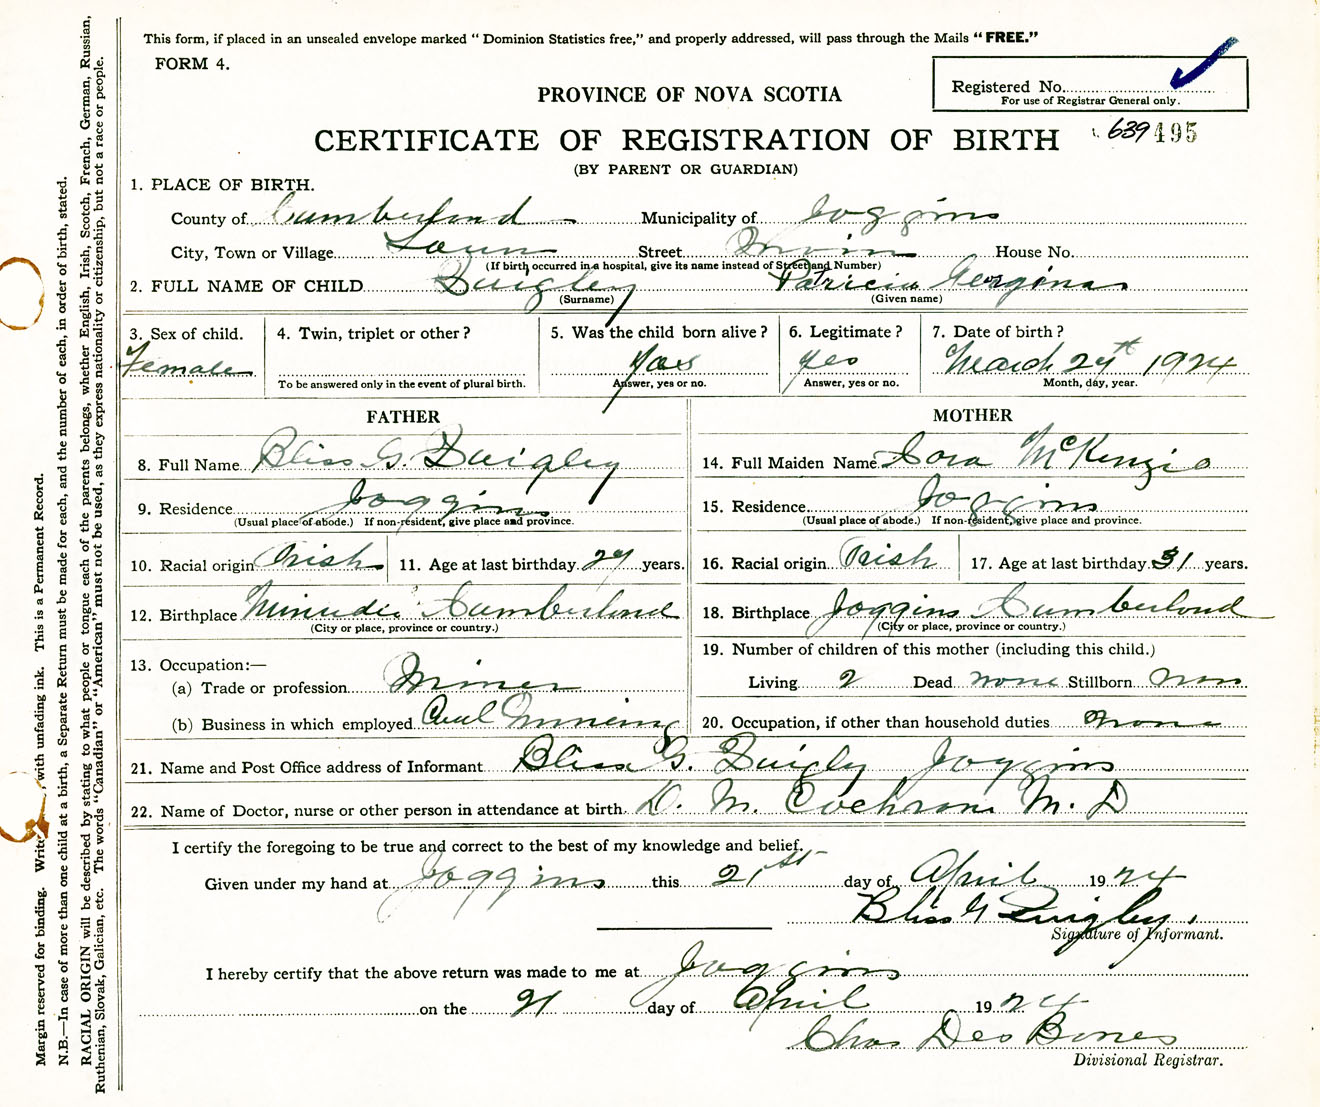 This form, if placed in an unsealed envelope marked "Dominion Statistics free," and properly addressed, will pass through the Mails "FREE."
FORM 4.
Registered No.
For use of Registrar General only.
PROVINCE OF NOVA SCOTIA
CERTIFICATE OF REGISTRATION OF BIRTH
639495
(BY PARENT OR GUARDIAN)
1. PLACE OF BIRTH.
County of Cumberland Municipality of Joggins
City, Town or Village Town Street Main House No.
(If birth occurred in a hospital, give its name instead of Street and Number)
2. FULL NAME OF CHILD Quigley Patricia Georginas
(Surname) (Given name)
3. Sex of child. 4. Twin, triplet or other? 5. Was the child born alive? 6. Legitimate? 7. Date of birth?
Female Yes yes March 24th 1924
To be answered only in the event of plural birth. Answer, yes or no. Answer, yes or no. Month, day, year.
FATHER MOTHER
8. Full Name Bliss G. Quigley 14. Full Maiden Name Cora McKenzie
9. Residence Joggins 15. Residence Joggins
(Usual place of abode.) If non-resident, give place and province. (Usual place of abode.) If non-resident, give place and province.
10. Racial origin Irish 11. Age at last birthday 29 years. 16. Racial origin Irish 17. Age at last birthday 31 years.
12. Birthplace Minudie Cumberland 18. Birthplace Joggins Cumberland
(City or place, province or country.) (City or place, province or country.)
13. Occupation:— 19. Number of children of this mother (including this child.)
(a) Trade or profession Miner Living 2 Dead none Stillborn Non
(b) Business in which employed Coal Mineing 20. Occupation, if other than household duties None
21. Name and Post Office address of Informant Bliss G. Quigly Joggins
22. Name of Doctor, nurse or other person in attendance at birth. D. M. Cochran M. D
I certify the foregoing to be true and correct to the best of my knowledge and belief.
Given under my hand at Joggins this 21st day of April 1924
Bliss G Quigley.
Signature of Informant.
I hereby certify that the above return was made to me at Joggins
on the 21 day of April 1924
Chas Des Bones
Divisional Registrar.
Margin reserved for binding. Write, with unfading ink. This is a Permanent Record.
N.B.—In case of more than one child at a birth, a Separate Return must be made for each, and the number of each, in order of birth, stated.
RACIAL ORIGIN will be described by stating to what people or tongue each of the parents belongs, whether English, Irish, Scotch, French, German, Russian,
Ruthenian, Slovak, Galician, etc. The words "Canadian" or "American" must not be used, as they express nationality or citizenship, but not a race or people.